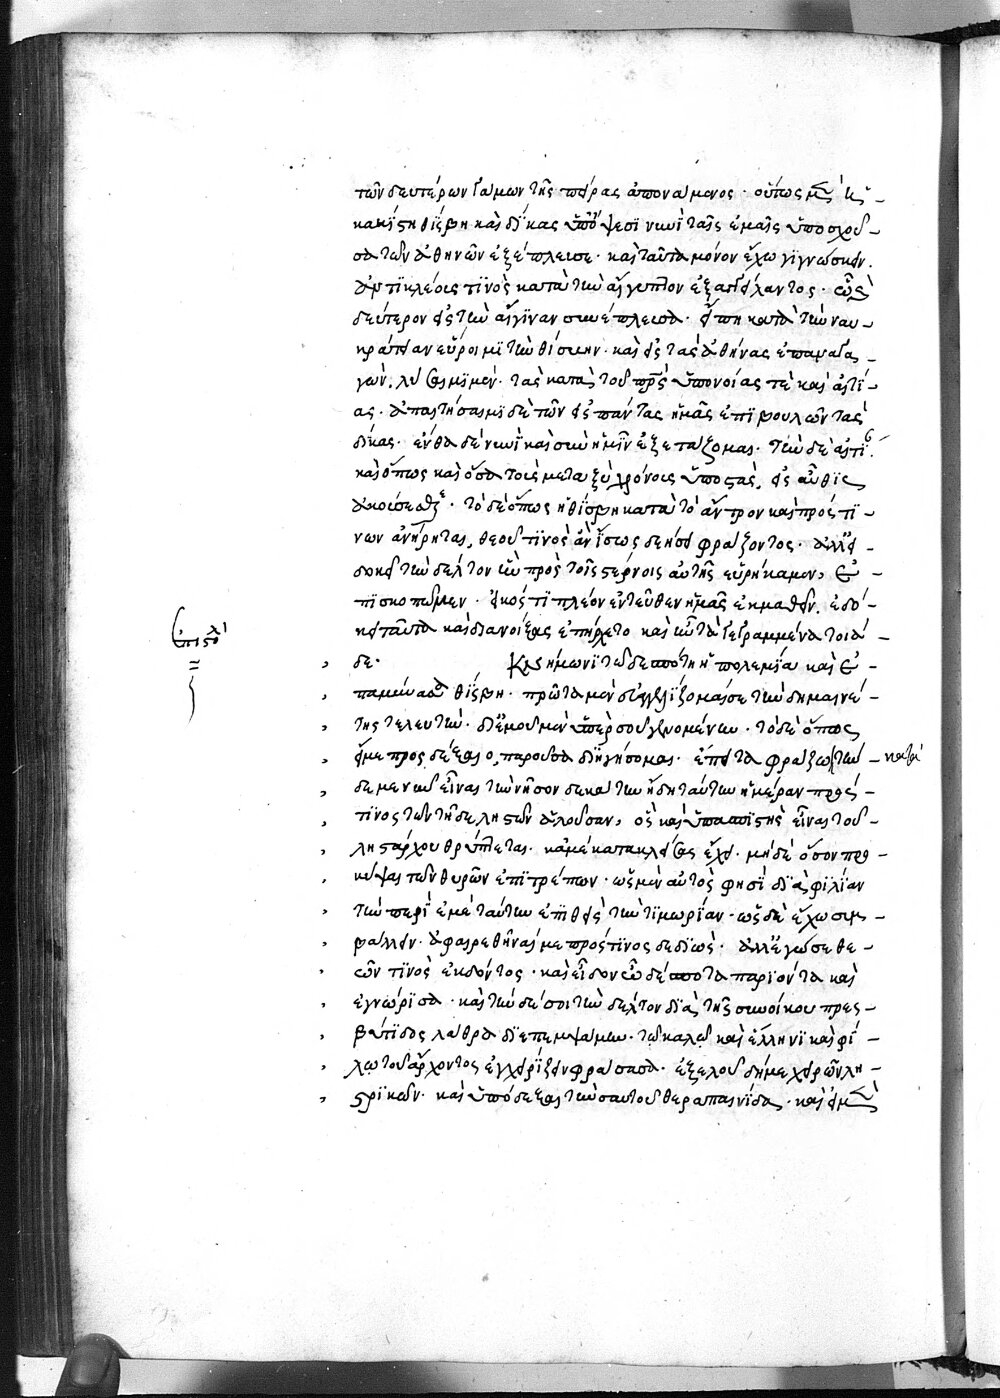 τῶν δευτέρων γάμων τῆς πείρας ἀπονάμενος· οὕτως μὲν ἡ
κακίστη θίσβη καὶ δίκας ὑπόψεσι νωῒ ταῖς ἐμαῖς ὑποσχοῦ-
σα τῶν ἀθηνῶν ἐξέπλευσε· καὶ ταῦτα μόνον ἔχω γιγνώσκειν.
ἀντικλέους τινὸς κατὰ τὴν αἴγυπτον ἐξαγγείλαντος· ᾧ καὶ
δεύτερον εἰς τὴν αἴγιναν συνέπλευσα· εἴ πη κατὰ τὴν ναυ-
κράτειαν εὕροιμι τὴν θίσβην· καὶ εἰς τὰς ἀθήνας ἐπαναγα-
γών. λύσαιμι μέν· τὰς κατὰ τοῦ πατρὸς ὑπονοίας τὲ καὶ αἰτί-
ας· ἀπαιτήσαιμι δὲ τῶν εἰς πάντας ἡμᾶς ἐπιβουλῶν τὰς
δίκας· ἐνθάδε νωῒ καὶ σὺν ἡμῖν ἐξετάζομαι· τὴν δὲ αἰτί
καὶ ὅπως καὶ ὅσα τοῖς μεταξὺ χρόνοις ὑποστὰς, εἰς αὖθις
ἀκούσεσθε· τὸ δὲ ὅπως ἡ θίσβη κατὰ τὸ ἄντρον καὶ πρός τι-
νων ἀνήρηται, θεοῦ τινὸς ἂν ἴσως δεήσει φράζοντος· ἀλλ' εἰ
δοκεῖ τὴν δέλτον ἣν πρὸς τοῖς στέρνοις αὐτῆς εὑρήκαμεν, ἐ-
πισκοπῶμεν· εἰκός τι πλέον ἐντεῦθεν ἡμᾶς ἐκμαθεῖν. ἐδό-
κει ταῦτα καὶ διανοίξας ἐπήρχετο καὶ ἦν τὰ γεγραμμένα τοιά-
δε· Κνήμωνι τῷ δεσπότῃ ἡ πολεμία καὶ ἐ-
παμύνασα θίσβη· πρῶτα μὲν εὐαγγελίζομαί σε τὴν δημαινέ-
της τελευτὴν· δι' ἐμοῦ μὲν ὑπὲρ σοῦ γενομένην· τὸ δὲ ὅπως
εἴ με προσδέξαιο, παροῦσα διηγήσομαι· ἔπειτα φράζω κατὰ τήν-
δε με νῦν εἶναι τὴν νῆσον δεκάτην ἤδη ταύτην ἡμέραν πρός
τινος τῶν τῇδε ληστῶν ἁλοῦσαν, ὃς καὶ ὑπασπιστὴς εἶναι τοῦ
λῃστάρχου θρύπτεται· κἀμὲ κατακλείσας ἔχει· μηδὲ ὅσον προ-
κύψαι τῶν θυρῶν ἐπιτρέπων· ὡς μὲν αὐτὸς φησὶ διὰ φιλίαν
τὴν περὶ ἐμὲ ταύτην ἐπιθεὶς τὴν τιμωρίαν· ὡς δὲ ἔχω συμ-
βαλεῖν· ἀφαιρεθῆναί με πρός τινος δεδιὼς· ἀλλ' ἐγώ σε θε-
ῶν τινὸς ἐνδόντος· καὶ εἶδον ὦ δέσποτα παριόντα καὶ
ἐγνώρισα· καὶ τήνδε σοι τὴν δέλτον διὰ τῆς συνοίκου πρεσ-
βύτιδος λάθρα διεπεμψάμην· τῷ καλῷ καὶ ἕλληνι καὶ φί-
λῳ τοῦ ἄρχοντος ἐγχειρίζειν φράσασα· ἐξελοῦ δή με χειρῶν λη-
στρικῶν· καὶ ὑπόδεξαι τὴν σαυτοῦ θεραπαινίδα· καὶ εἰ μὲν